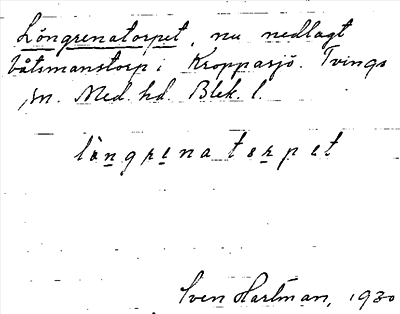 Löngrenatorpet, nu nedlagt
båtsmanstorp i Kroppasjö. Tvings
sn. Med. hd. Blek. l.
lòngrena torpet
Sven Hartman, 1930